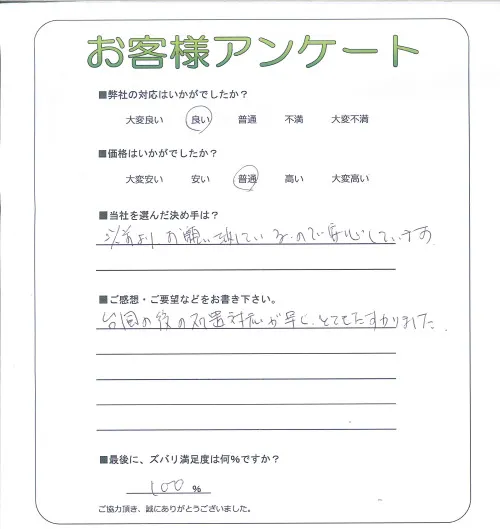 お客様アンケート
■弊社の対応はいかがでしたか？
大変良い 良い 普通 不満 大変不満
■価格はいかがでしたか？
大変安い 安い 普通 高い 大変高い
■当社を選んだ決め手は？
以前より、お願い致しているので安心しています
■ご感想・ご要望などをお書き下さい。
台風の後の処置対応が早く、とてもたすかりました
■最後に、ズバリ満足度は何％ですか？
100 %
ご協力頂き、誠にありがとうございました。